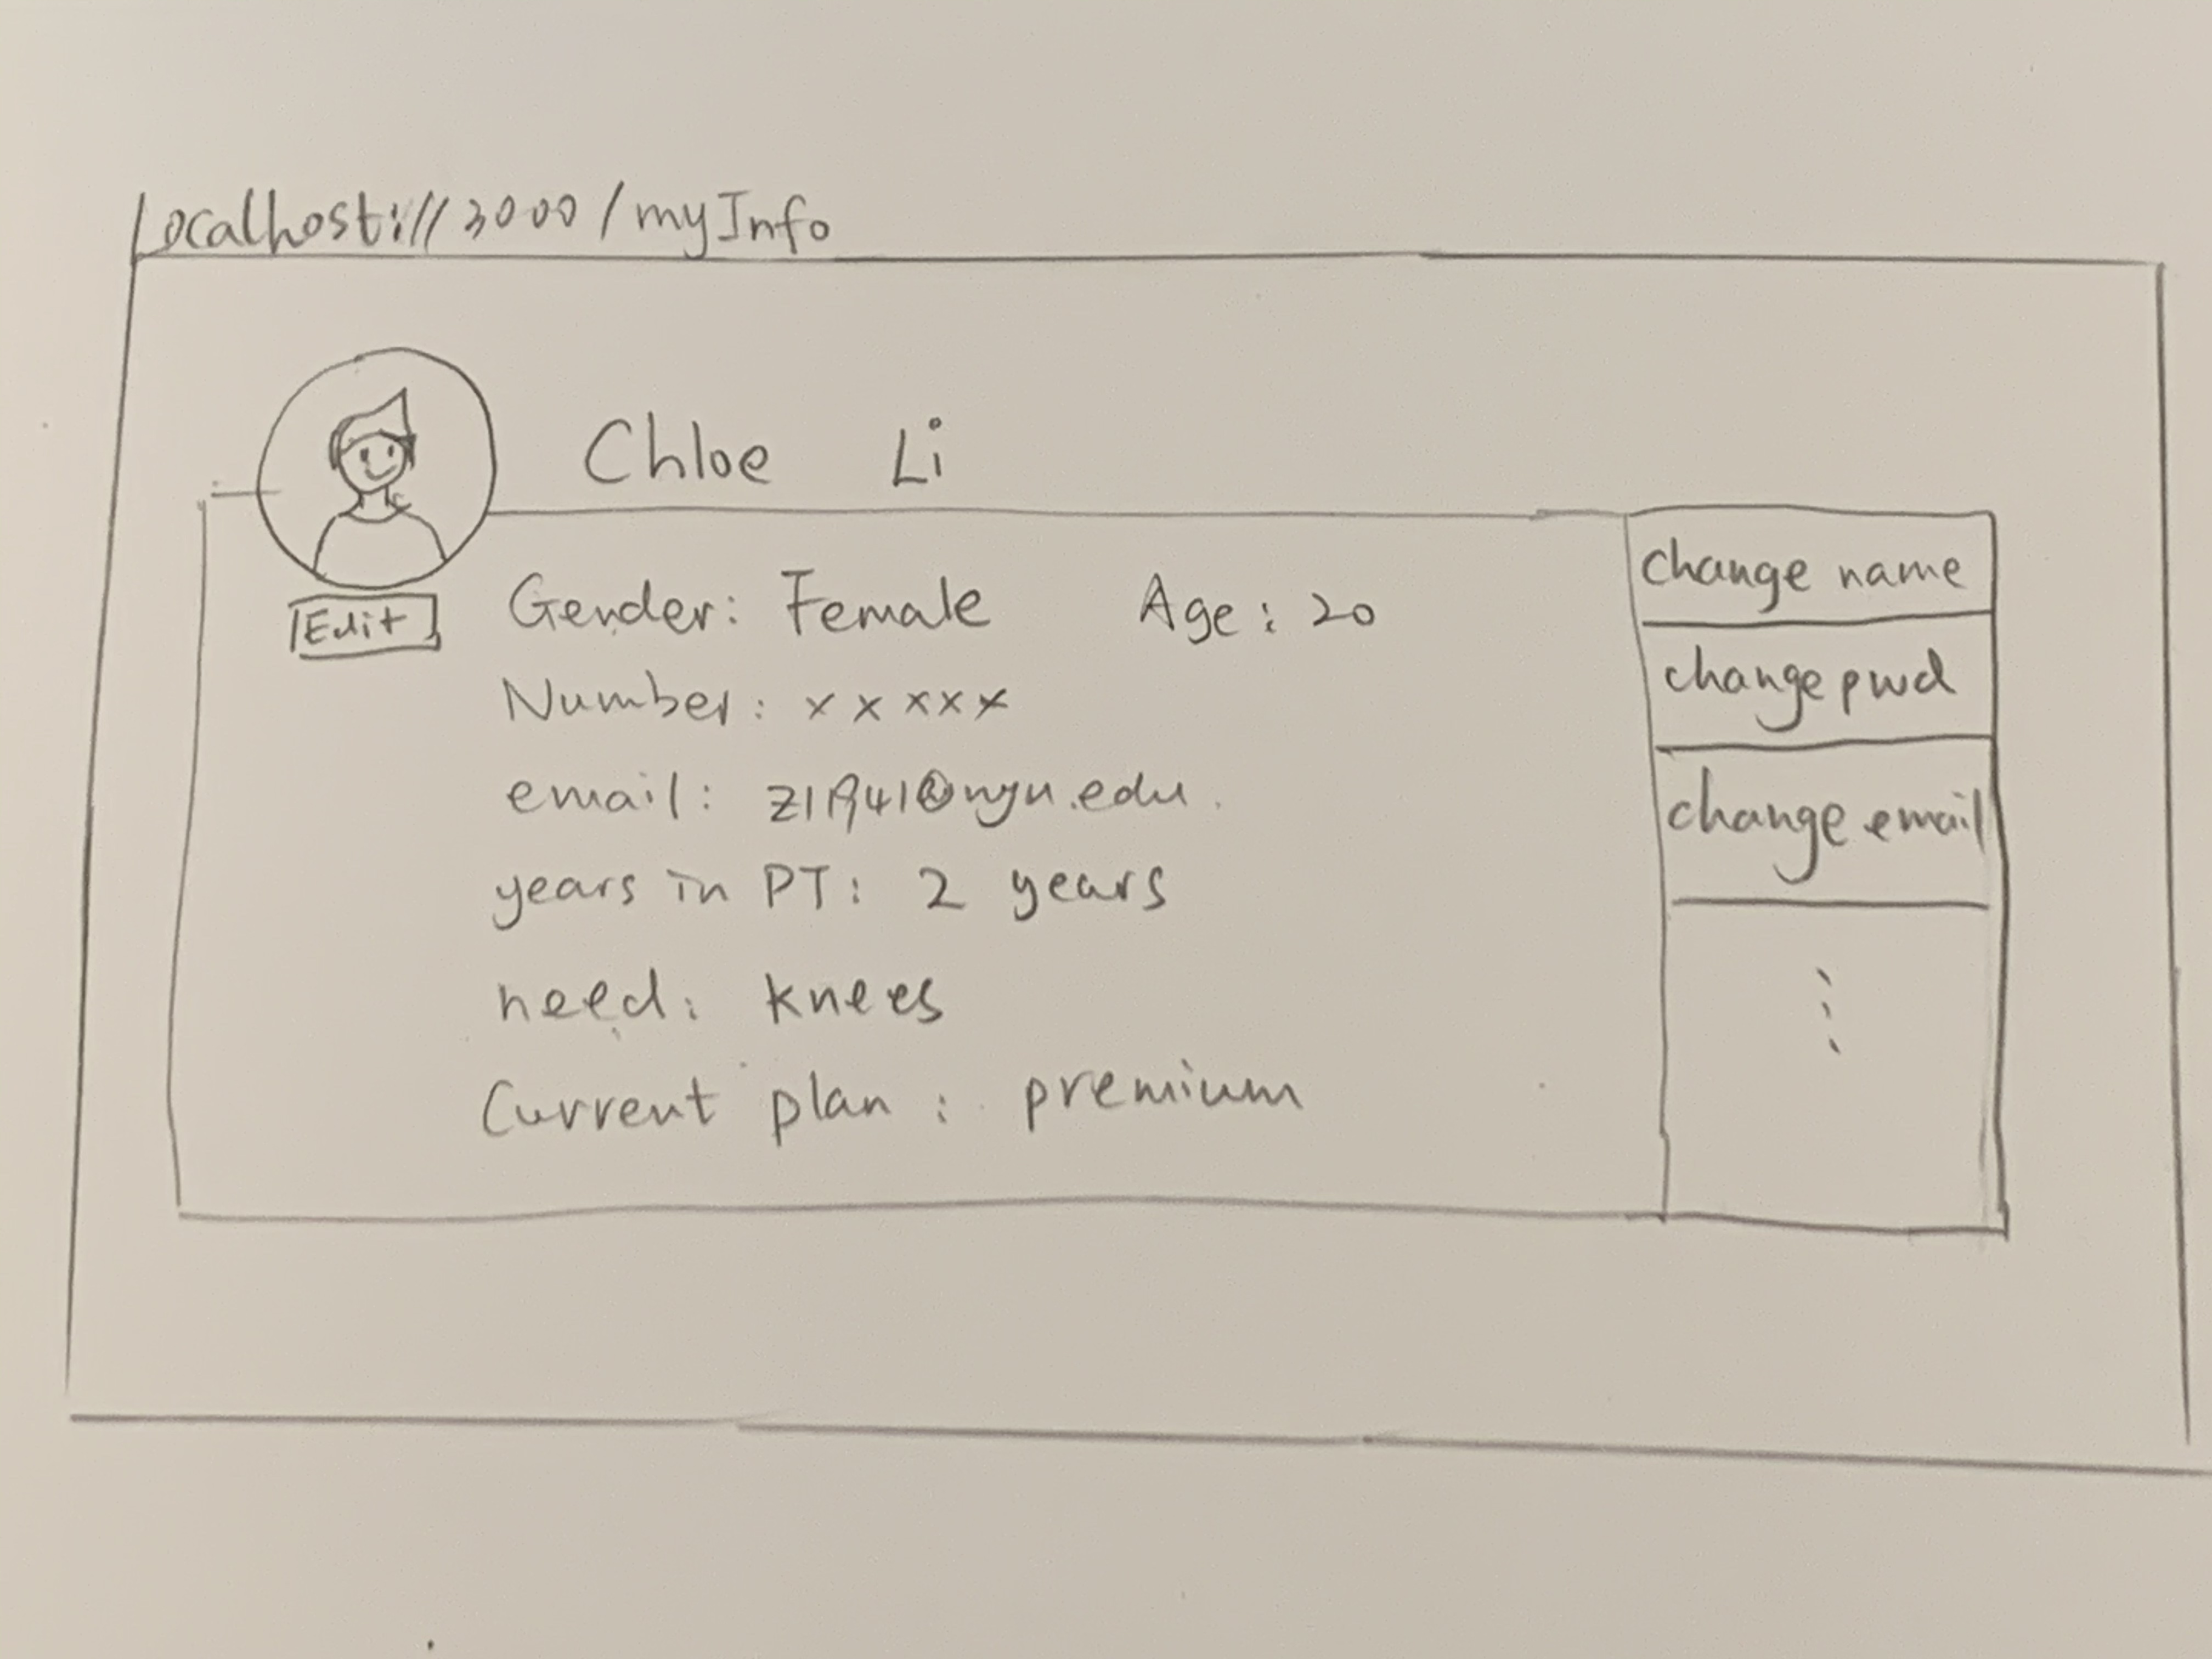 Localhost://3000/myInfo
Chloe Li
Edit
Gender: Female Age: 20
Number: xxxxx
email:
years in PT: 2 years
need: knees
Current plan: premium
change name
change pwd
change email